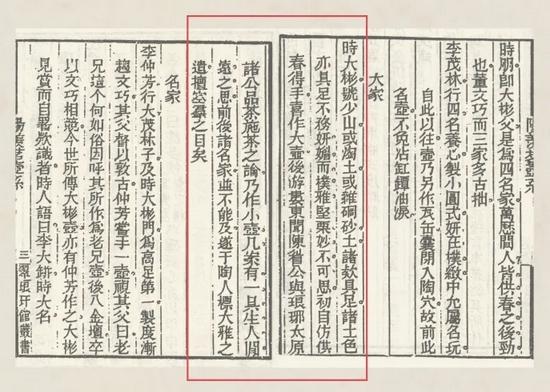 陽羨茗壺系
時朋卽大彬父是爲四名家萬曆間人皆供春之後勁
也董文巧而三家多古拙
李茂林行四名養心製小圓式妍在樸緻中允屬名玩
自此以往壺乃另作瓦缶囊閉入陶穴故前此
名壺不免沾缸罈油淚
大家
時大彬號少山或淘土或雜碙砂土諸款具足諸土色
亦具足不務妍媚而樸雅堅栗妙不可思初自仿供
春得手喜作大壺後游婁東聞陳眉公與瑯琊太原
諸公品茶施茶之論乃作小壺几案有一具生人閒
遠之思前後諸名家並不能及遂于陶人標大雅之
遺擅空羣之目矣
名家
李仲芳行大茂林子及時大彬門爲高足第一製度漸
趨文巧其父督以敦古仲芳嘗手一壺視其父曰老
兄這個何如俗因呼其所作爲老兄壺後入金壇卒
以文巧相競今世所傳大彬壺亦有仲芳作之大彬
見賞而自署款識者時人語曰李大缾時大名
陽羨茗壺系
三
翠琅玕館叢書